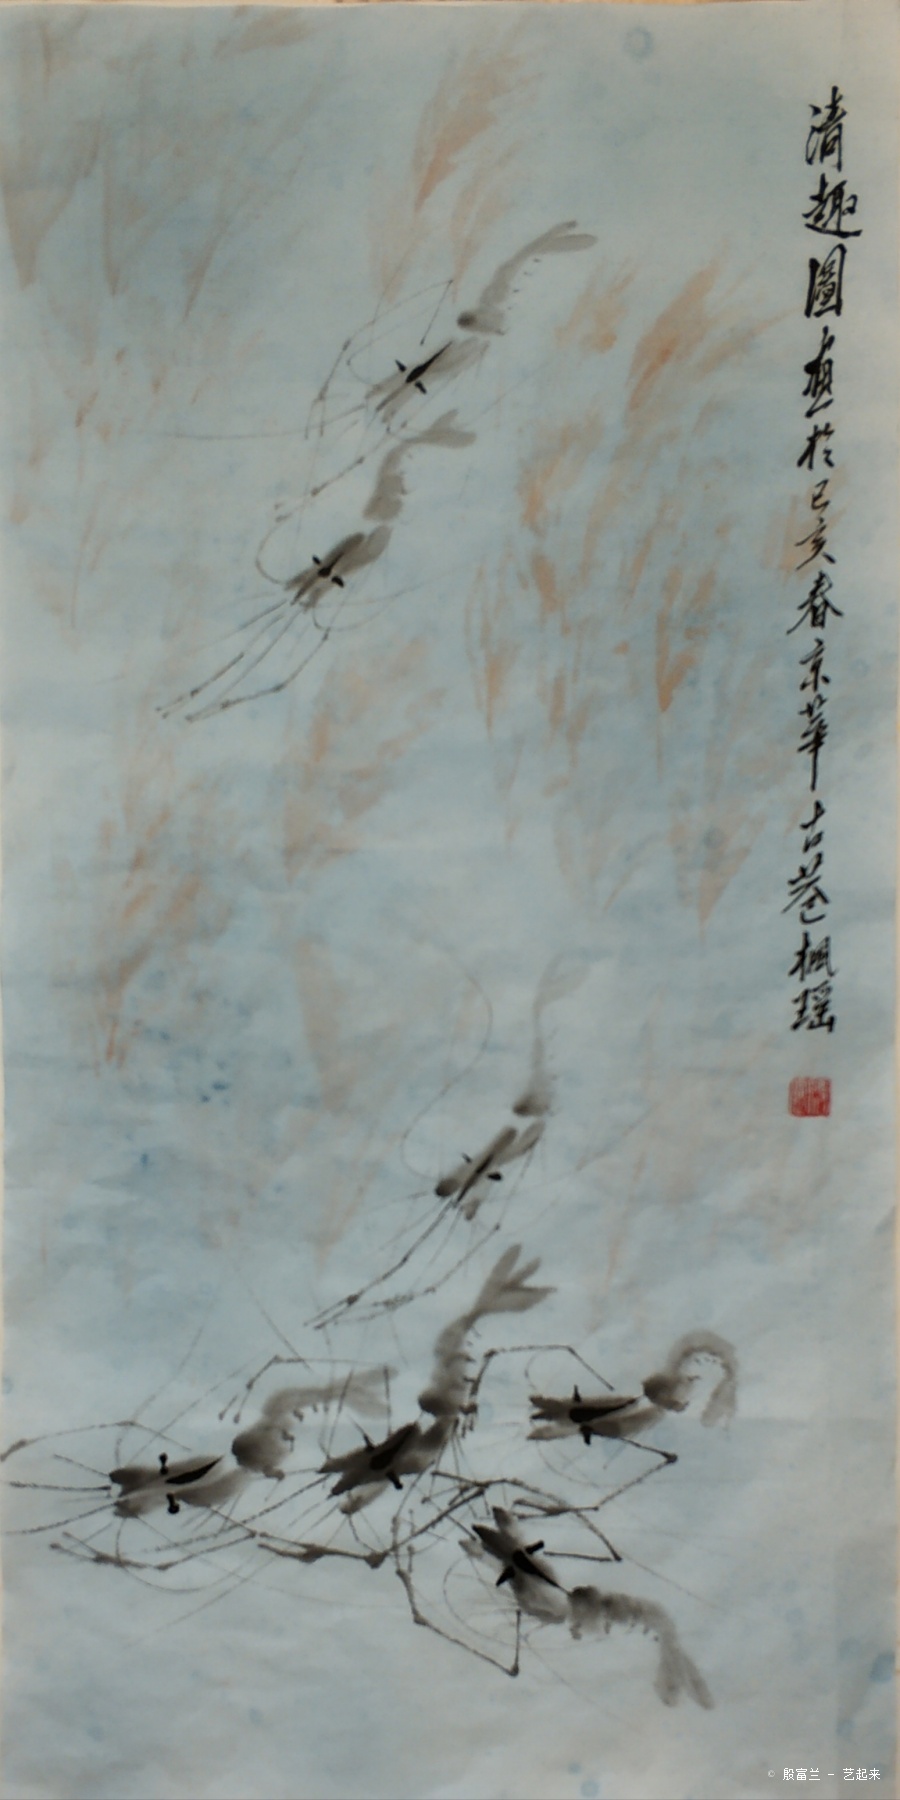 清趣圖畫於己亥春京華古巷枫瑶
© 殷富兰 - 艺起来